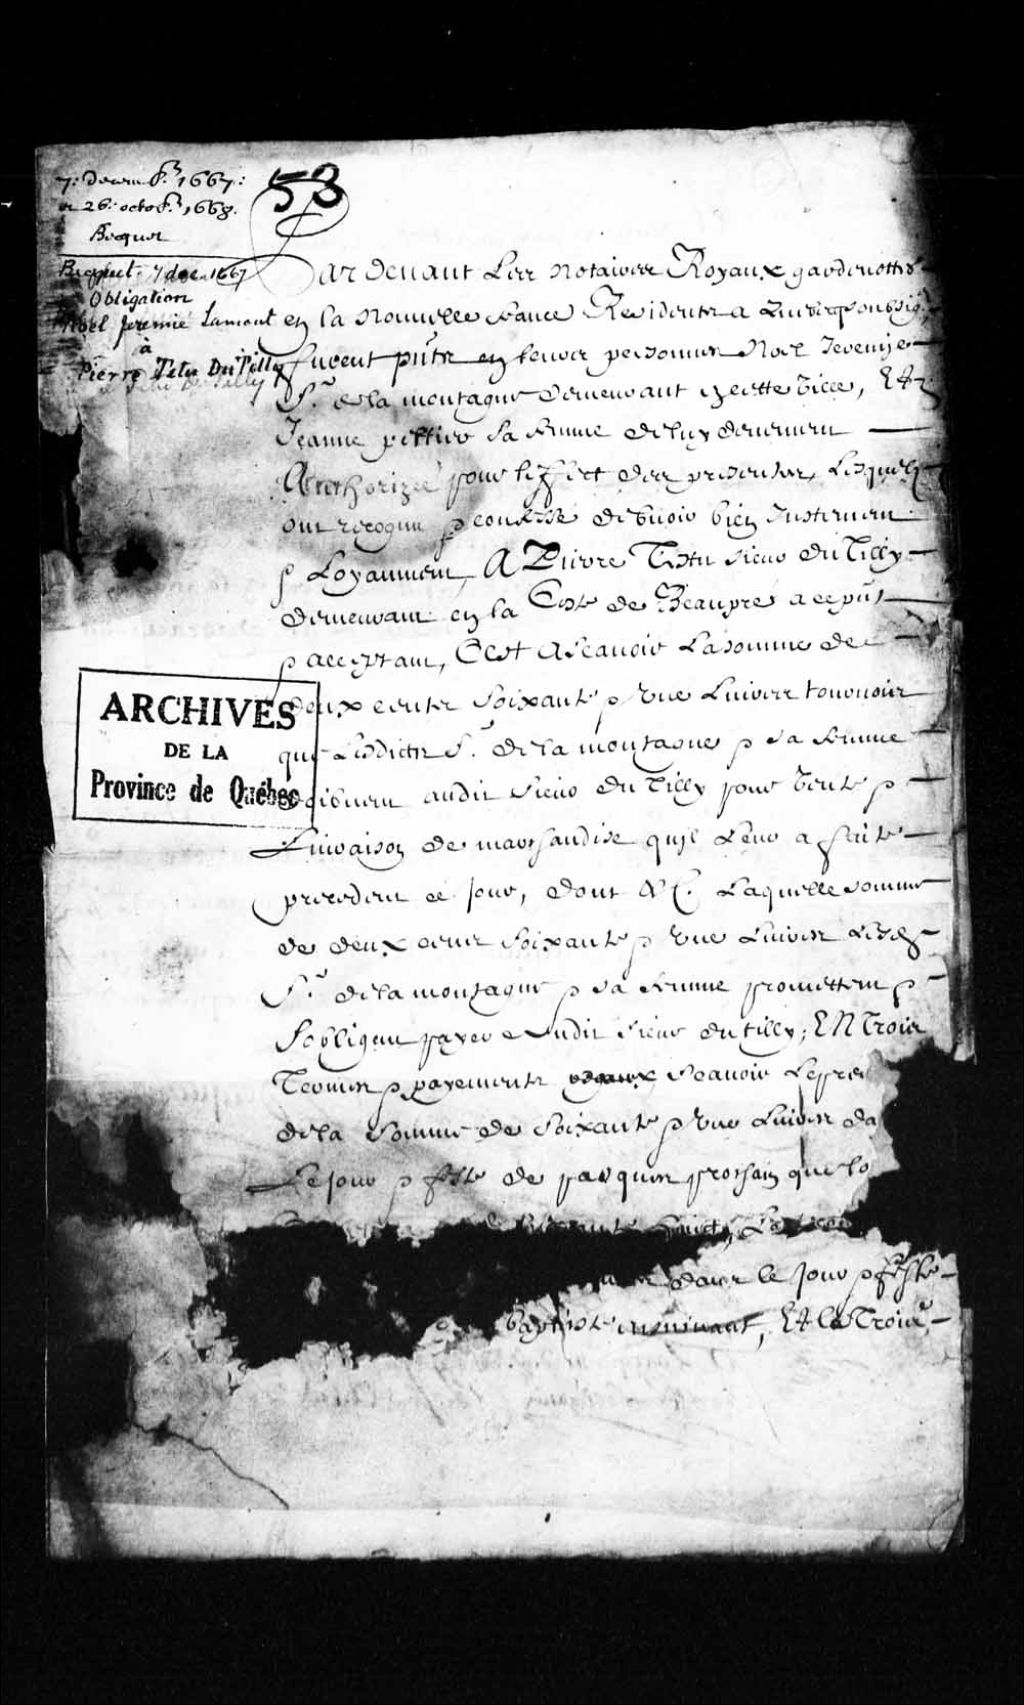 7: Decem br. 1667:
et 26: octobr. 1668.
Becquet
53
Becquet 7 dec 1667
Obligation
Noel Jeremie Lamont
à
Pierre Tetu Du Tilly
Pardevant Les notaires Royaux gardenottes
en la Nouvelle france Residents a Quebecq soubsig
furent pnts en leurs personnes Noel Jeremie
Sr. de la montagne demeurant en cette ville, Et
Jeanne peltier sa femme de luy deuement
Authorizée pour l'effect des presentes, Lesquels
ont recognu & confessé debvoir bien Justement
& Loyaument, A Pierre Testu sieur du Tilly
demeurant en la Coste de Beaupré a ce pnt
& acceptant, C'est Ascavoir La somme de
deux cents soixante & une Livres tournois
que Lesdicts Sr. de la montagne & sa femme
doibvent audit sieur du Tilly pour vente &
Livraison de marchandise qu'il Leur a faite
precedent ce jour, dont &c. Laquelle somme
de deux cents soixante & une Livres Lesd
Sr. de la montagne & sa femme promettent &
s'obligent payer audit sieur du tilly, EN Trois
Termes & payements egaux scavoir Le pre
de la somme de soixante & une Livres da
Le jour & feste de pasques prochain que lo
dans le jour & feste
baptiste ensuivant, Et le Trois
ARCHIVES
DE LA
Province de Québec